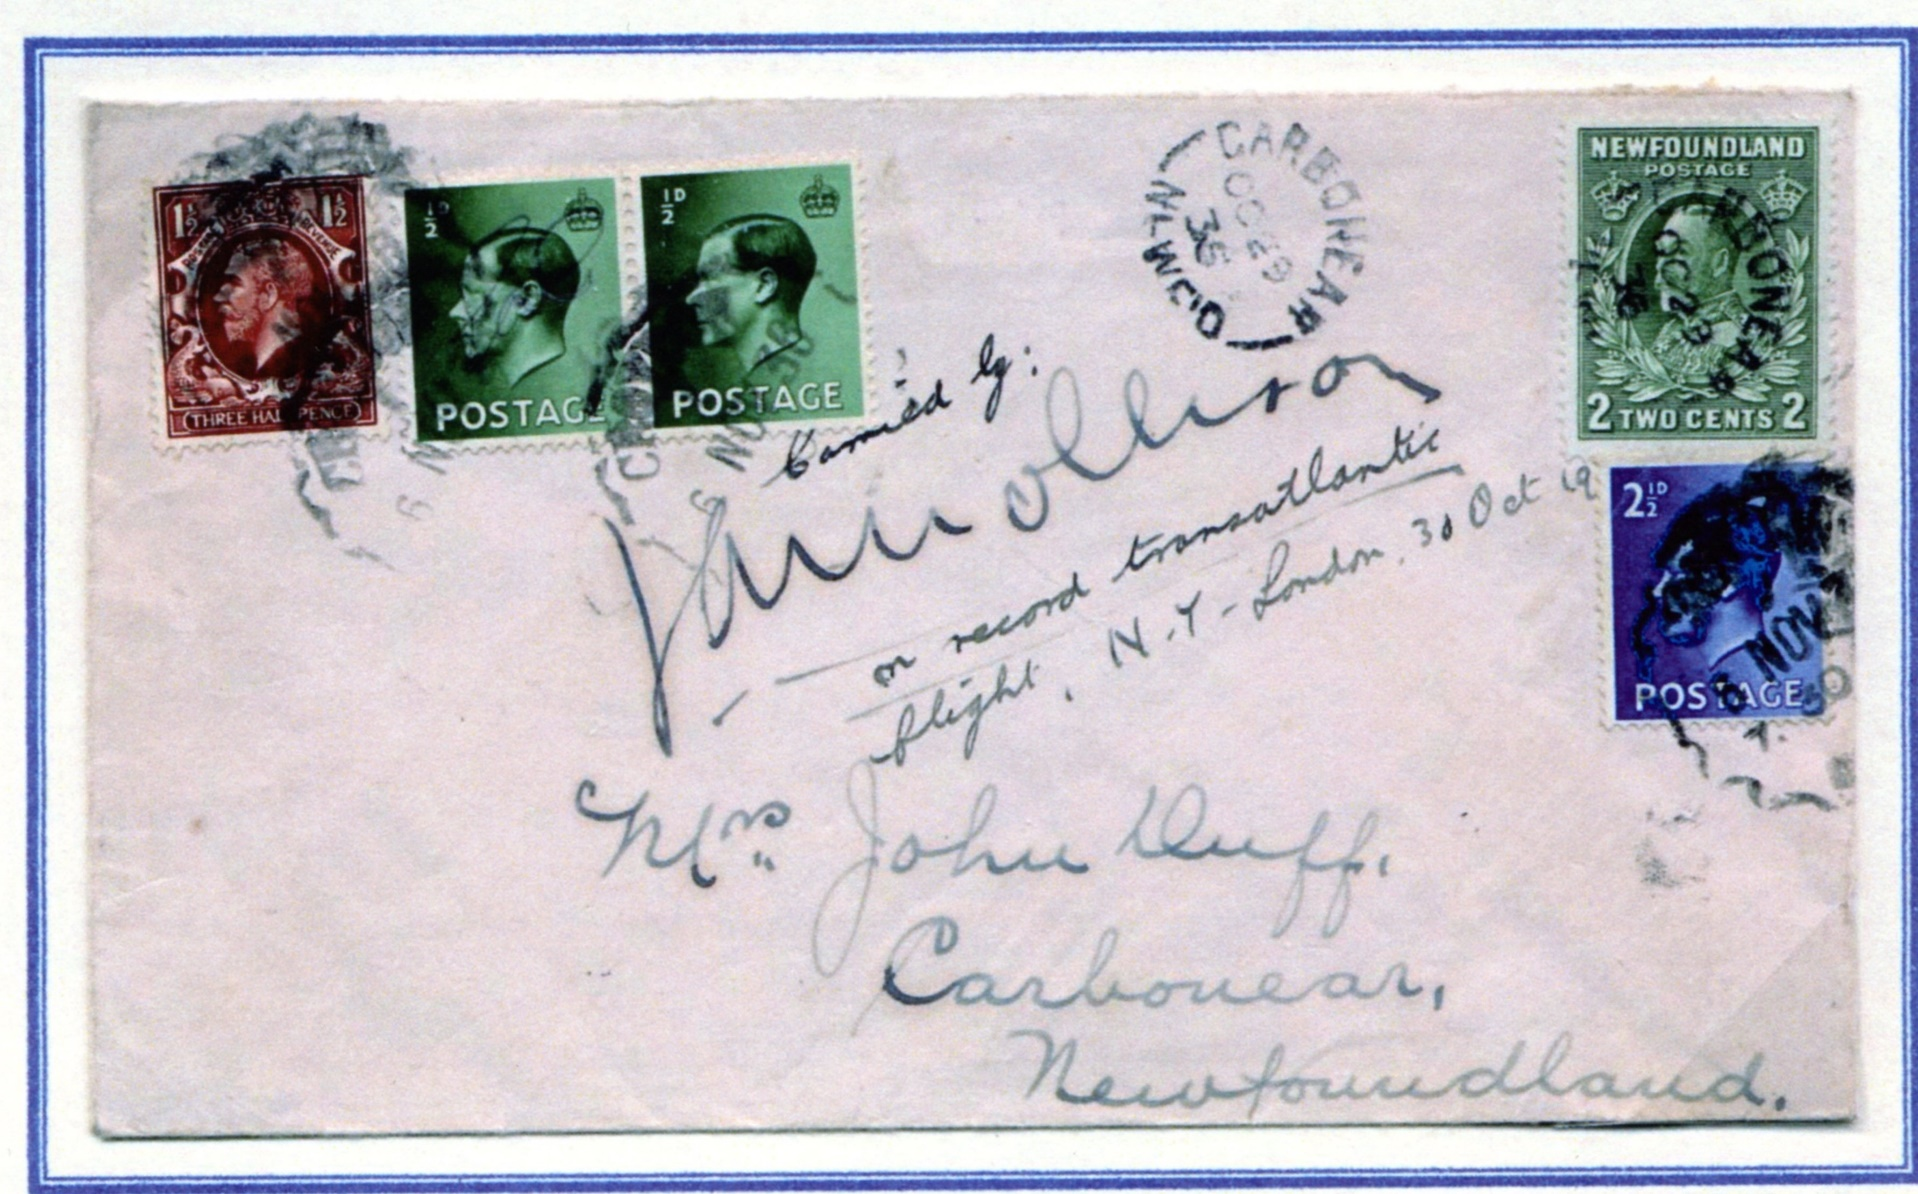 1½ 1½
THREE HALF PENCE
½D
POSTAGE
½D
POSTAGE
CARBONEAR
OC 29
36
NFLD
NEWFOUNDLAND
POSTAGE
OC 29
36
2 TWO CENTS 2
2½D
POSTAGE
6 NOV
Carried by:
J A Mollison
on record transatlantic
flight, N.Y - London, 30 Oct 19
Mrs John Duff,
Carbonear,
Newfoundland.